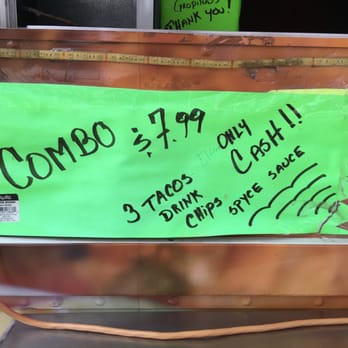 THANK YOU!
COMBO $7.99
ONLY
CASH!!
3 TACOS
DRINK
CHIPS
SPYCE SAUCE